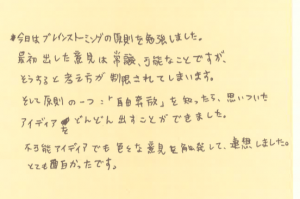 今日はブレインストーミングの原則を勉強しました。
最初出した意見は常識、可能なことですが、
そうすると考え方が制限されてしまいます。
そして原則の一つ:「自由奔放」を知ったら、思いついた
アイディアをどんどん出すことができました。
不可能アイデアでも色々な意見を触発して、連想しました。
とても面白かったです。